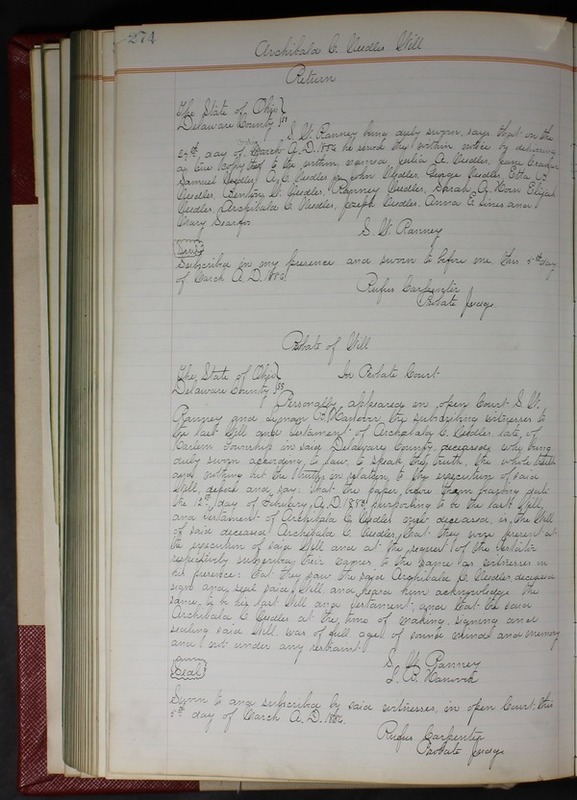 274
Archibald C. Needles Will
Return
The State of Ohio }
Delaware County } SS
S. W. Ranney being duly sworn, says that on the
day of March A.D. 1886 he served the within notice by delivering
a true copy to the within named, Julia A. Needles,
Samuel Needles, A. C. Needles John Needles, George Needles, Etta B
Needles, Benton W. Needles, Ranney Needles, Sarah A. Horr Elijah
Needles, Archibald C. Needles, Joseph Needles, Anna E. and
Mary
S. W. Ranney
Seal
Subscribed in my presence and sworn to before me, this 5th day
of March A.D. 1886.
Rufus Carpenter
Probate Judge.
Probate of Will
The State of Ohio } In Probate Court
Delaware County } SS
Personally appeared in open Court S. W.
Ranney and the subscribing witnesses to
the last Will and Testament of Archibald C. Needles, late of
Harlem Township in said Delaware County, deceased, who being
duly sworn according to law, to speak the truth, the whole truth
and nothing but the truth, in relation to the execution of said
Will, depose and say: that the paper before them bearing date
the 12th day of February A.D. 1886 purporting to be the last Will
and Testament of Archibald C. Needles now deceased, is the Will
of said deceased Archibald C. Needles, that they were present at
the execution of said Will and at the request of the testator
respectively subscribed their names to the same as witnesses in
his presence: that they saw the said Archibald C. Needles, deceased
sign and seal said Will, and heard him acknowledge the
same, to be his last Will and testament, and that the said
Archibald C. Needles at the time of making, signing and
sealing said Will, was of full age, of sound mind and memory
and not under any restraint.
Seal
S. W. Ranney
L. R. Hanover
Sworn to and subscribed by said witnesses, in open Court, this
5th day of March A.D. 1886.
Rufus Carpenter
Probate Judge